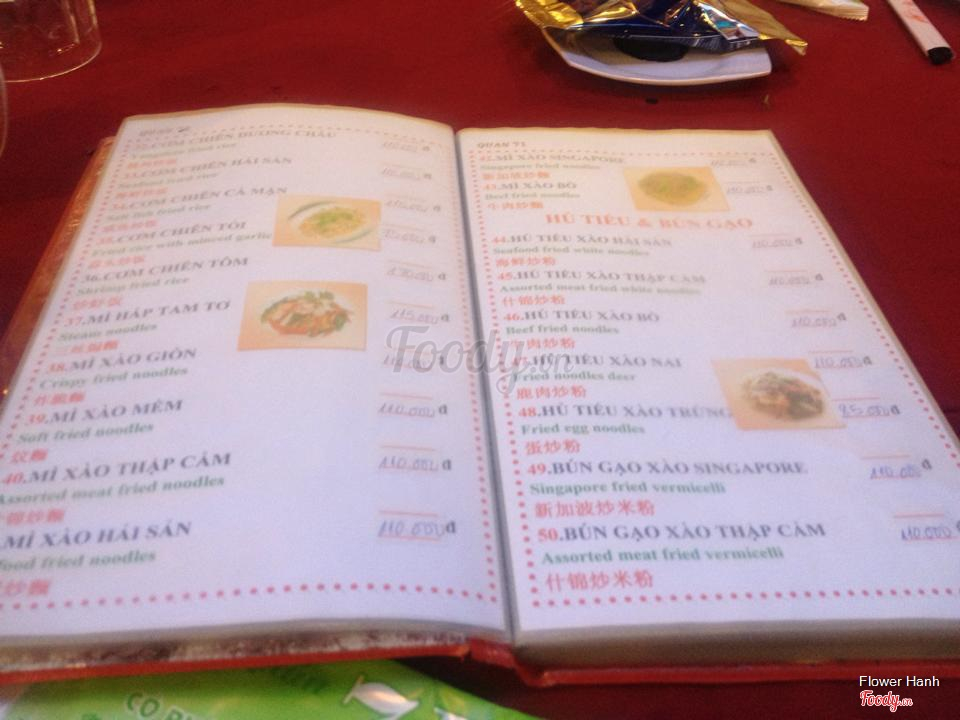 32.CƠM CHIÊN DƯƠNG CHÂU
Yangzhou fried rice
33.CƠM CHIÊN HẢI SẢN
Seafood fried rice
海鲜炒饭
34.CƠM CHIÊN CÁ MẶN
Salt fish fried rice
咸鱼炒饭
35.CƠM CHIÊN TỎI
Fried rice with minced garlic
蒜头炒饭
36.CƠM CHIÊN TÔM 170.000đ
Shrimp fried rice
炒虾饭
37.MÌ HẤP TAM TƠ 115.000đ
Steam noodles
三丝焗麵
38.MÌ XÀO GIÒN 110.000đ
Crispy fried noodles
炸脆麵
39.MÌ XÀO MỀM 110.000đ
Soft fried noodles
炆麵
40.MÌ XÀO THẬP CẨM 110.000đ
Assorted meat fried noodles
什锦炒麵
MÌ XÀO HẢI SẢN 110.000đ
food fried noodles
炒麵
QUAN 71
42.MÌ XÀO SINGAPORE 110.000đ
Singapore fried noodles
新加波炒麵
43.MÌ XÀO BÒ 110.000đ
Beef fried noodles
牛肉炒麵
HỦ TIẾU & BÚN GẠO
44.HỦ TIẾU XÀO HẢI SẢN 110.000đ
Seafood fried white noodles
海鲜炒粉
45.HỦ TIẾU XÀO THẬP CẨM 110.000đ
Assorted meat fried white noodles
什锦炒粉
46.HỦ TIẾU XÀO BÒ 110.000đ
Beef fried noodles
牛肉炒粉
47.HỦ TIẾU XÀO NAI 110.000đ
Fried noodles deer
鹿肉炒粉
48.HỦ TIẾU XÀO TRỨNG 85.000đ
Fried egg noodles
蛋炒粉
49.BÚN GẠO XÀO SINGAPORE 110.000đ
Singapore fried vermicelli
新加波炒米粉
50.BÚN GẠO XÀO THẬP CẨM 110.000đ
Assorted meat fried vermicelli
什锦炒米粉
Foody.vn
Flower Hanh
Foody.vn